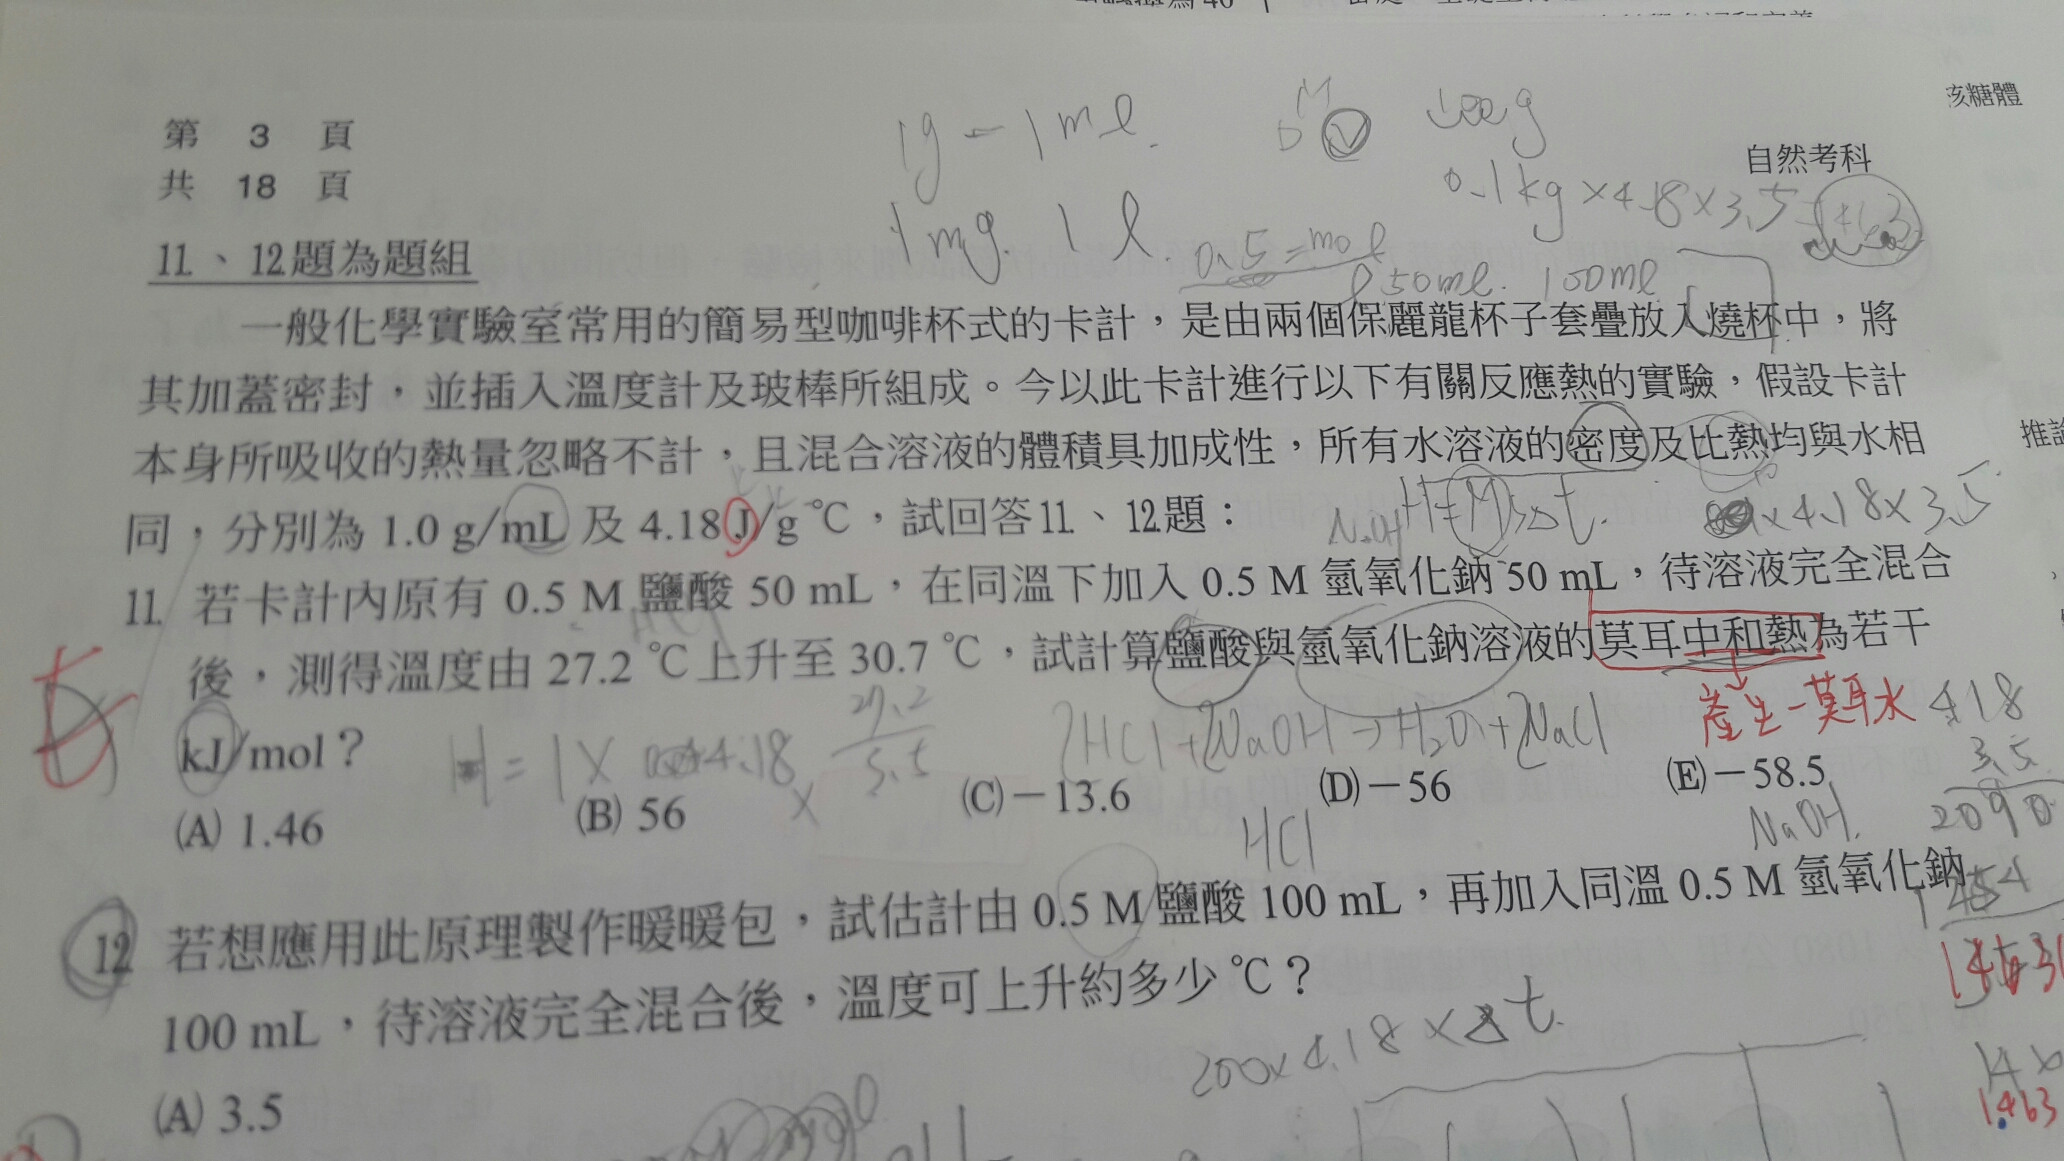 核糖體
第 3 頁
共 18 頁
自然考科
1g = 1ml.
100g
0.1kg×4.18×3.5
1mg. 1l.
50ml. 100ml
11、12題為題組
一般化學實驗室常用的簡易型咖啡杯式的卡計，是由兩個保麗龍杯子套疊放入燒杯中，將
其加蓋密封，並插入溫度計及玻棒所組成。今以此卡計進行以下有關反應熱的實驗，假設卡計
本身所吸收的熱量忽略不計，且混合溶液的體積具加成性，所有水溶液的密度及比熱均與水相
同，分別為 1.0 g/mL 及 4.18 J/g ℃，試回答11、12題：
H=MsΔt.
×4.18×3.5
NaOH
11. 若卡計內原有 0.5 M 鹽酸 50 mL，在同溫下加入 0.5 M 氫氧化鈉 50 mL，待溶液完全混合
後，測得溫度由 27.2 ℃上升至 30.7 ℃，試計算鹽酸與氫氧化鈉溶液的莫耳中和熱為若干
kJ/mol？
產生一莫耳水
2HCl+2NaOH→H2O+2NaCl
27.2
3.5
4.18
3.5
2090
1254
(A) 1.46 (B) 56 (C)－13.6 (D)－56 (E)－58.5
HCl
NaOH.
12. 若想應用此原理製作暖暖包，試估計由 0.5 M 鹽酸 100 mL，再加入同溫 0.5 M 氫氧化鈉
100 mL，待溶液完全混合後，溫度可上升約多少℃？
200×4.18×Δt.
1.463
(A) 3.5